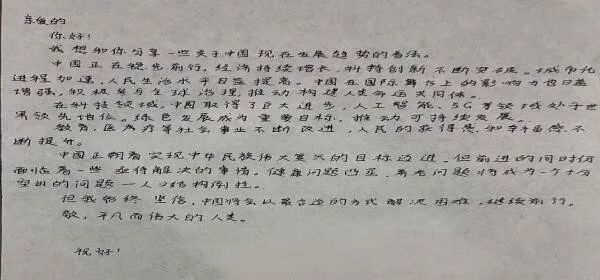 亲爱的
你好!
我想和你分享一些关于中国现在发展趋势的看法。
中国正在稳步前行,经济持续增长,科技创新不断突破。城市化
进程加速,人民生活水平日益提高。中国在国际舞台上的影响力也日益
增强,积极参与全球治理,推动构建人类命运共同体。
在科技领域,中国取得了巨大进步,人工智能、5G等领域处于世
界领先地位。绿色发展成为重要目标,推动可持续发展。
教育、医疗等社会事业不断改进,人民的获得感和幸福感不
断提升。
中国正朝着实现中华民族伟大复兴的目标迈进。但前进的同时仍
面临着一些亟待解决的事情。健康问题凸显,养老问题将成为一个十分
突出的问题—人口结构倒性。
但我始终坚信,中国将会以最合适的方式解决困难,继续前行。
敬,平凡而伟大的人类。
祝好!